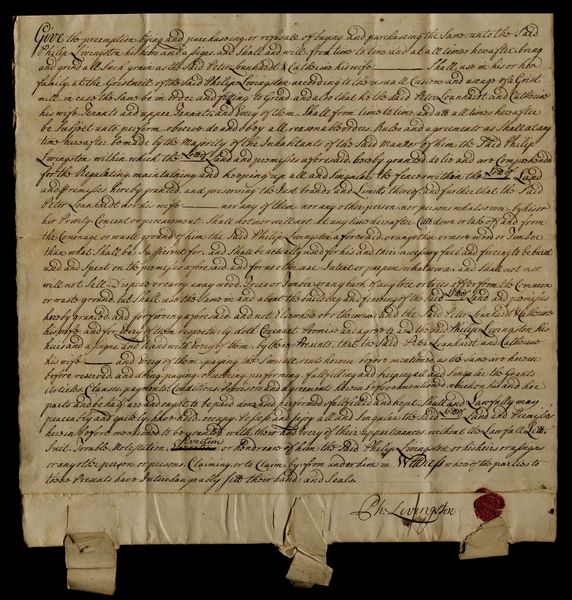 Give the preemption buying and purchasing or refusale of buying and purchasing the Same unto the Said
Philip Livingston his heirs and assigns and Shall and will from time to time and at all times hereafter bring
and grind all Such grain as the Said Peter Leonhardt & Catherine his wife Shall use in his or her
family at the Gristmill of the said Philip Livingston according to the usuall Custom and usage of a Grist
mill in case the Same be in Order and fitting to Grind. and also that he the Said Peter Leonhardt and Catherine
his wife Tenants and upper Tenants and Every of them Shall from time to time and att all times hereafter
be Subject unto perform observe do and obey all reasonable orders Rules and agreements as Shall at any
time hereafter be made by the Majority of the Inhabitants of the Said Manner of him the Said Philip
Livingston within which the Land and premises aforesaid hereby granted do lie and are Comprehended
for the Regulating maintaining and keeping up all and Singular the fences within the Land
and premises hereby granted and preserving the Just bounds and Limits thereof and further that the Said
Peter Leonhardt his wife nor any of them nor any other person or persons whatsoever by his or
her Privity Consent or procurement Shall not nor will not at any time hereafter Cutt down or take off and from
the Commonage or waste ground of him the Said Philip Livingston aforesaid or any other more wood or Timber
than what Shall be Sufficient for and Shall be actually used for his and their necessary fuel and fencing to be burnt
used and Spent on the premises aforesaid and for no other use Intent or purpose whatsoever and Shall not nor
will not Sell Dispose or carry away wood trees or Timber or any of from the Common
or waste ground but Shall use the Same in and about the building and fencing of the Said Land and premises
hereby granted and for firing aforesaid and not Elsewhere or otherwise and the Said Peter Leonhardt & Catherine
his wife and for Every of them respectively doth Covenant Promise and agree to and with the Said Philip Livingston his
heirs and assigns and with Every of them by these Presents that the Said Peter Leonhardt and Catherine
his wife and Every of them paying the Sevrall rents herein before mentioned as the Same are herein
before reserved and they paying observing performing fulfilling and keeping all and Singular the Grants
Articles Clauses payments Conditions Provisions and agreements herein before mentioned which on his and her
parts and behalfs are and ought to be paid done and performed fulfilled and kept Shall and Lawfully may
peaceably and quietly have hold occupy Possess and Enjoy all and Singular the Said Land and Premises
herein before mentioned to be granted with their and Every of their appurtenances without the Lawfull Lett
Suit Trouble Molestation Eviction or hindrance of him the Said Philip Livingston or his heirs or assigns
or any other person or persons Claiming or to Claim by from or under him in Witness whereof the parties to
these Presents have Interchangeably sett their hands and Seals.
Ph: Livingston